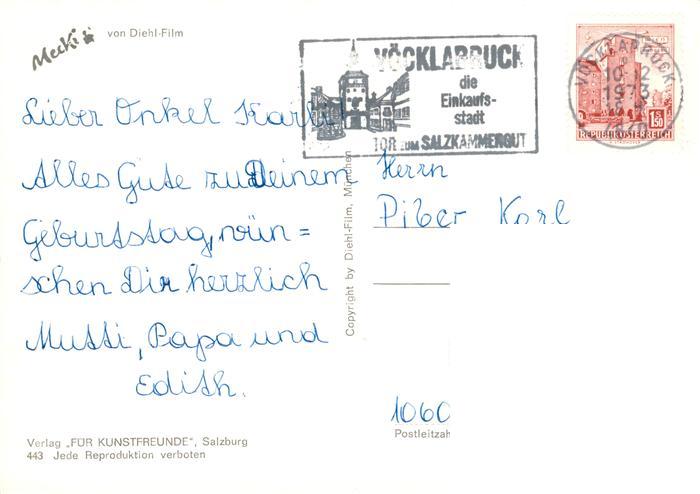 Mecki von Diehl-Film
VÖCKLABRUCK
die
Einkaufs-
stadt
TOR ZUM SALZKAMMERGUT
VÖCKLABRUCK
10.12
1973
1.50
REPUBLIK ÖSTERREICH
Lieber Onkel Karli!
Alles Gute zu Deinem
Geburtstag, wün=
schen Dir herzlich
Mutti, Papa und
Edith.
Copyright by Diehl-Film, München
Herrn
Piber Karl
1060
Postleitzah
Verlag „FÜR KUNSTFREUNDE“, Salzburg
443 Jede Reproduktion verboten